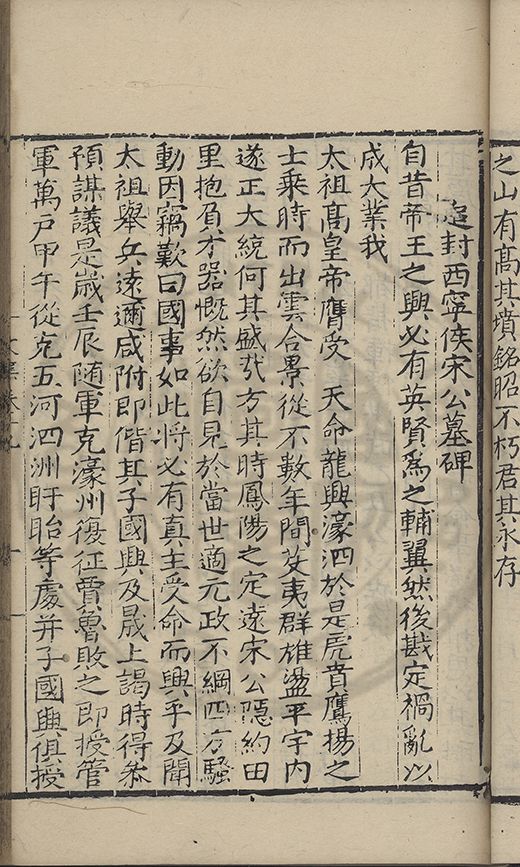 之山有髙其墳銘昭不朽君其永存
追封西寧侯宋公墓碑
自昔帝王之興必有英賢爲之輔翼然後戡定禍亂以
成大業我
太祖髙皇帝膺受 天命龍興濠泗於是虎賁鷹揚之
士乘時而出雲合景從不數年間芟夷群雄盪平宇内
遂正大統何其盛㢤方其時鳳陽之定遠宋公隱約田
里抱負才器慨然欲自見於當世適元政不綱四方騷
動因竊歎曰國事如此將必有真主受命而興乎及聞
太祖舉兵遠邇咸附即偕其子國興及晟上謁時得叅
預謀議是歲壬辰随軍克濠州復征賈魯敗之即授管
軍萬户甲午從克五河泗洲盱眙等處并子國興俱授